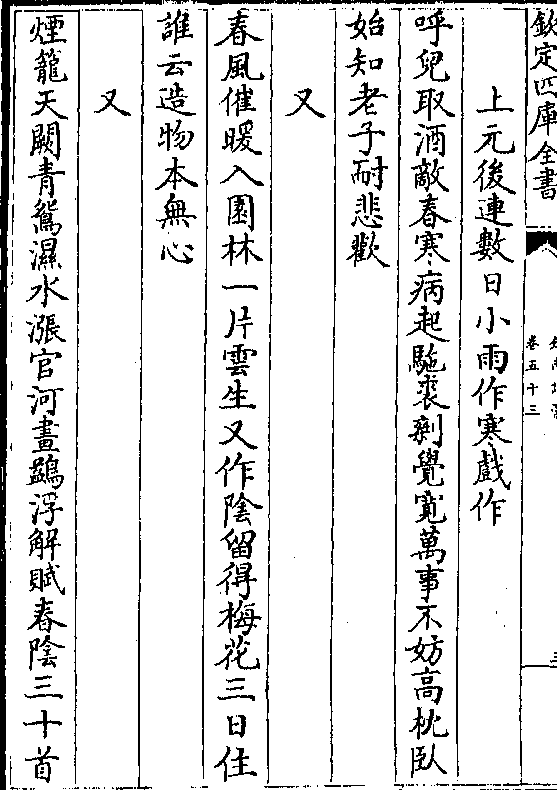 欽定四庫全書
卷五十三
上元後連數日小雨作寒戲作
呼兒取酒敵春寒病起駞裘剰覺寛萬事不妨高枕臥
始知老子耐悲歡
又
春風催暖入園林一片雲生又作陰留得梅花三日住
誰云造物本無心
又
煙籠天闕青鴛濕水漲官河畫鷁浮解賦春陰三十首